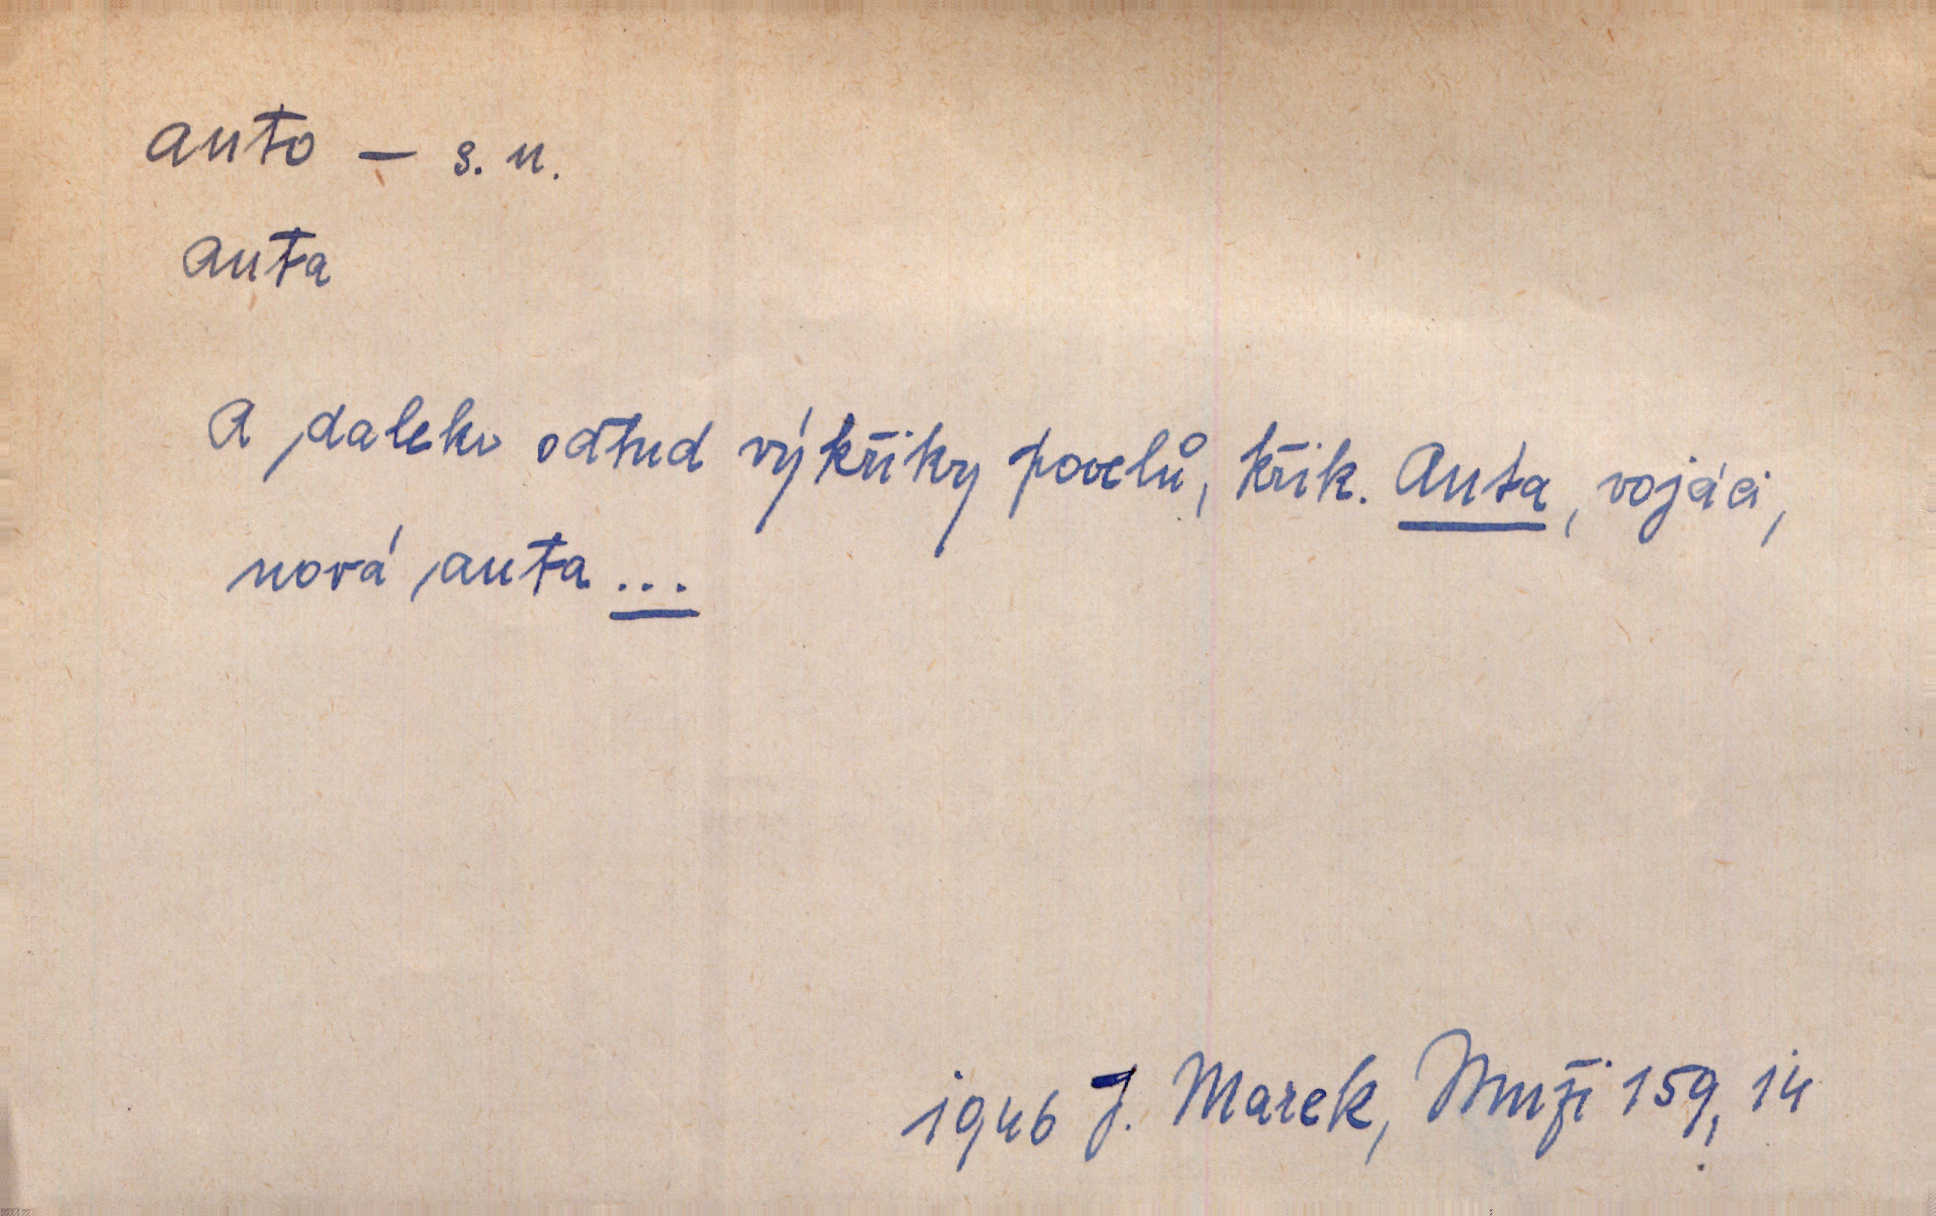 auto – s. n.
auta
A daleko odtud výkřiky povelů, křik. Auta, vojáci,
nová auta ...
1946 J. Marek, Muži 159, 14